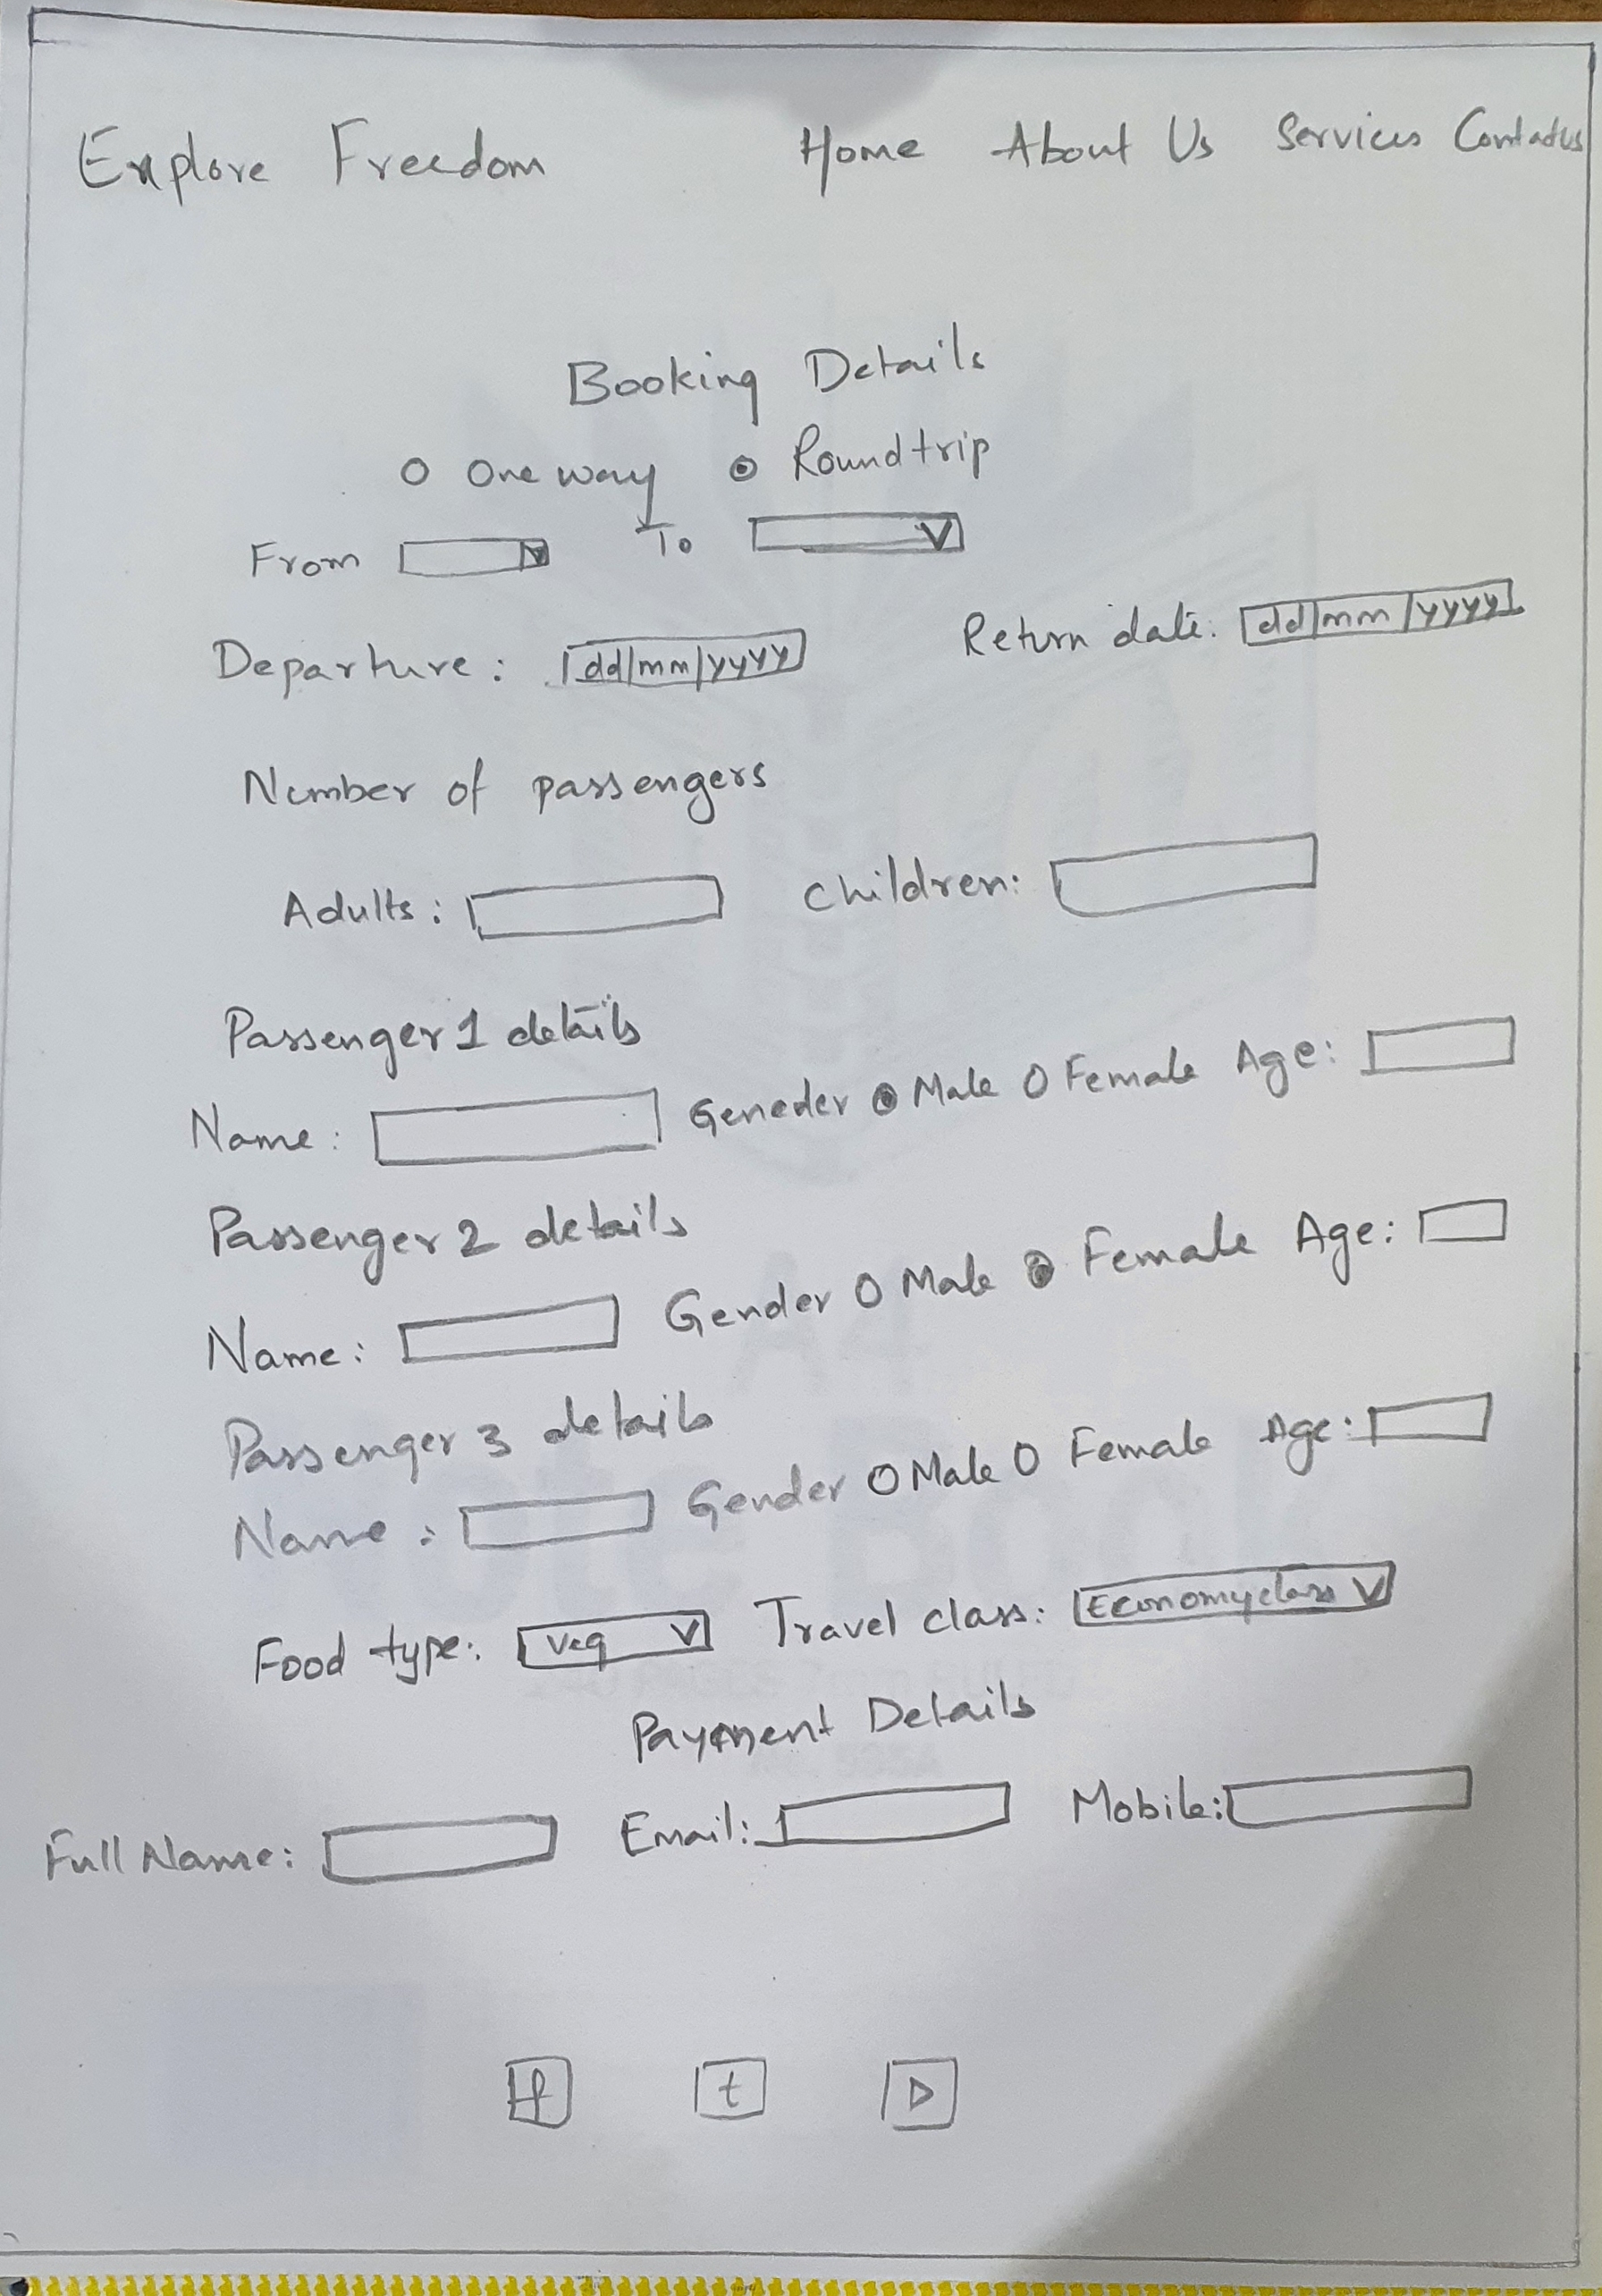 Explore Freedom Home About Us Services Contactus
Booking Details
One way Roundtrip
From To
Departure: dd/mm/yyyy Return date: dd/mm/yyyy
Number of passengers
Adults: Children:
Passenger 1 details
Name: Geneder Male Female Age:
Passenger 2 details
Name: Gender Male Female Age:
Passenger 3 details
Name: Gender Male Female Age:
Food type: Veg Travel class: Economyclass
Payment Details
Full Name: Email: Mobile:
f t